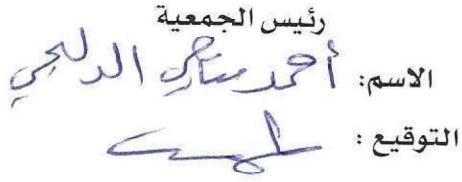 رئيس الجمعية
الاسم: أحمد الدلبحي
التوقيع :